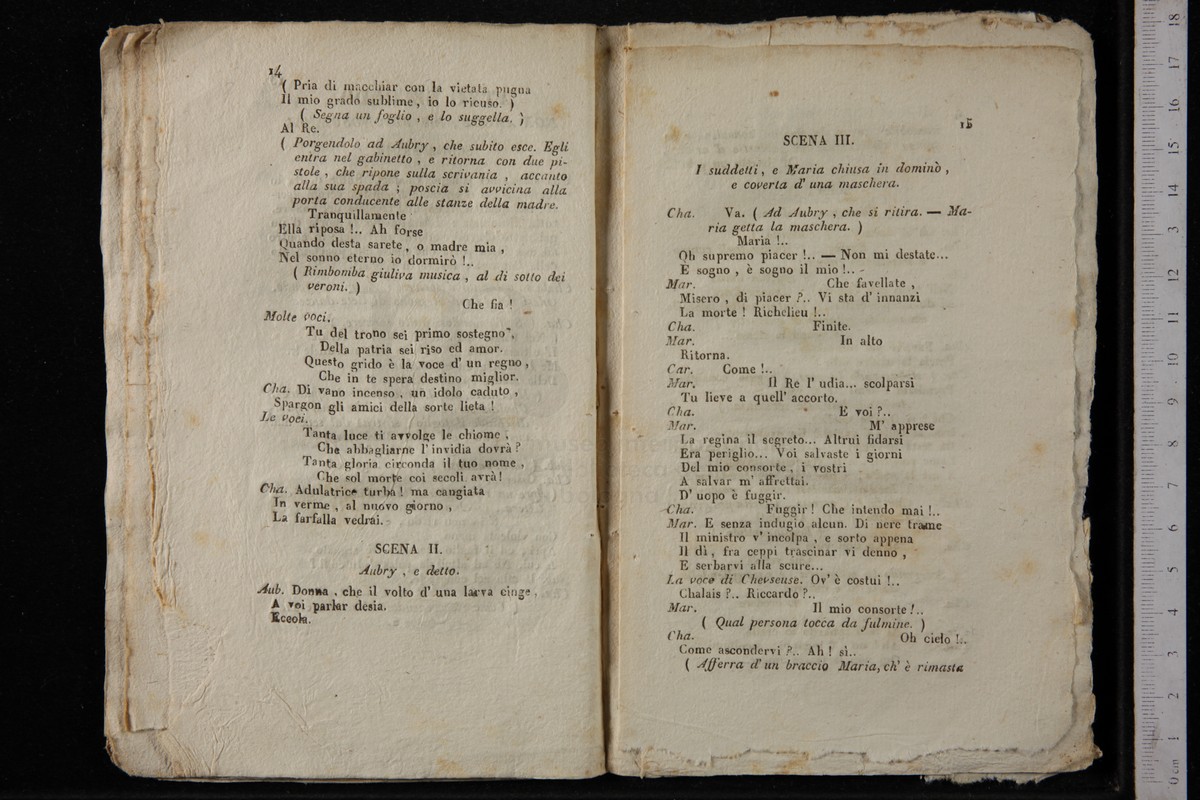 14
( Pria di macchiar con la vietata pugna
Il mio grado sublime, io lo ricuso. )
( Segna un foglio , e lo suggella. )
Al Re.
( Porgendolo ad Aubry , che subito esce. Egli
entra nel gabinetto , e ritorna con due pi-
stole , che ripone sulla scrivania , accanto
alla sua spada ; poscia si avvicina alla
porta conducente alle stanze della madre.
Tranquillamente
Ella riposa !.. Ah forse
Quando desta sarete, o madre mia ,
Nel sonno eterno io dormirò !..
( Rimbomba giuliva musica , al di sotto dei
veroni. )
Che fia !
Molte voci.
Tu del trono sei primo sostegno ,
Della patria sei riso ed amor.
Questo grido è la voce d' un regno ,
Che in te spera destino miglior.
Cha. Di vano incenso , un idolo caduto ,
Spargon gli amici della sorte lieta !
Le voci.
Tanta luce ti avvolge le chiome ,
Che abbagliarne l' invidia dovrà ?
Tanta gloria circonda il tuo nome ,
Che sol morte coi secoli avrà !
Cha. Adulatrice turba ! ma cangiata
In verme , al nuovo giorno ,
La farfalla vedrai.
SCENA II.
Aubry , e detto.
Aub. Donna , che il volto d' una larva cinge ,
A voi parlar desia.
Eccola.
15
SCENA III.
I suddetti, e Maria chiusa in dominò ,
e coverta d' una maschera.
Cha. Va. ( Ad Aubry , che si ritira. — Ma-
ria getta la maschera. )
Maria !..
Oh supremo piacer !.. — Non mi destate...
E sogno , è sogno il mio !.. -
Mar. Che favellate ,
Misero , di piacer ?.. Vi sta d' innanzi
La morte ! Richelieu !..
Cha. Finite.
Mar. In alto
Ritorna.
Car. Come !..
Mar. Il Re l' udia... scolparsi
Tu lieve a quell' accorto.
Cha. E voi ?..
Mar. M' apprese
La regina il segreto... Altrui fidarsi
Era periglio... Voi salvaste i giorni
Del mio consorte , i vostri
A salvar m' affrettai.
D' uopo è fuggir.
Cha. Fuggir ! Che intendo mai !..
Mar. E senza indugio alcun. Di nere trame
Il ministro v' incolpa , e sorto appena
Il dì , fra ceppi trascinar vi denno ,
E serbarvi alla scure...
La voce di Chevseuse. Ov' è costui !..
Chalais ?.. Riccardo ?..
Mar. Il mio consorte !..
( Qual persona tocca da fulmine. )
Cha. Oh cielo !..
Come ascondervi ?.. Ah ! sì..
( Afferra d' un braccio Maria, ch' è rimasta